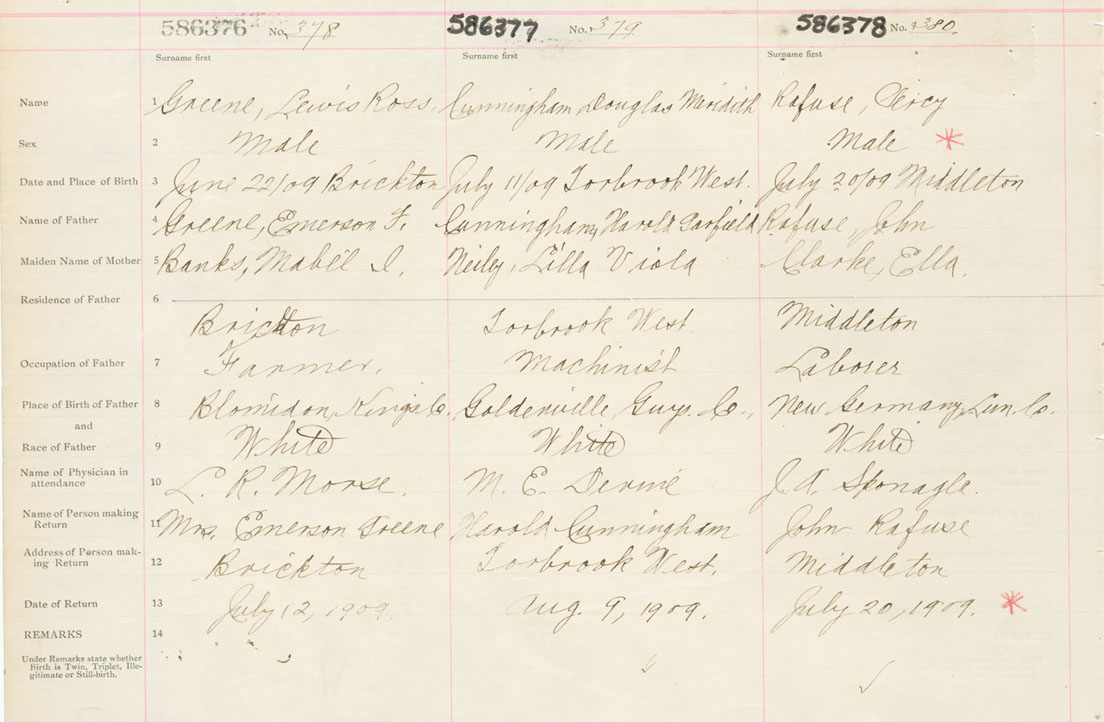 586376 No. 378 586377 No. 379 586378 No. 380.
Surname first Surname first Surname first
Name 1 Greene, Lewis Ross. Cunningham Douglas Meridith Rafuse, Percy
Sex 2 Male Male Male *
Date and Place of Birth 3 June 22/09 Brickton July 11/09 Torbrook West. July 20/09 Middleton
Name of Father 4 Greene, Emerson F. Cunningham, Harold Garfield Rafuse, John
Maiden Name of Mother 5 Banks, Mabel I. Neily, Lilla Viola Clarke, Ella.
Residence of Father 6
Brickton Torbrook West. Middleton
Occupation of Father 7 Farmer. Machinist Laborer
Place of Birth of Father 8 Blomidon, Kings Co. Goldenville, Guys. Co., New Germany, Lun. Co.
and
Race of Father 9 White White White
Name of Physician in
attendance 10 L. R. Morse. M. E. Devine J. A. Sponagle.
Name of Person making
Return 11 Mrs. Emerson Greene Harold Cunningham John Rafuse
Address of Person mak-
ing Return 12 Brickton Torbrook West. Middleton
Date of Return 13 July 12, 1909. Aug. 9, 1909. July 20, 1909. *
REMARKS 14
Under Remarks state whether
Birth is Twin, Triplet, Ille-
gitimate or Still-birth.